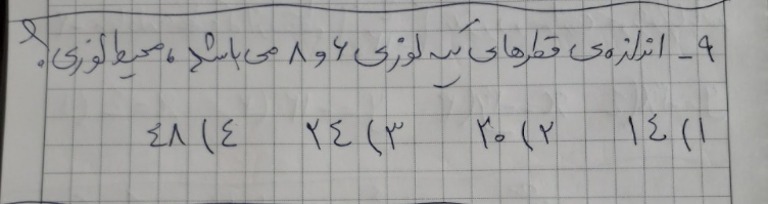 ۹ـ اندازه‌ی قطرهای یک لوزی ۶ و ۸ می باشد، محیط لوزی؟
۱) ۱۴ ۲) ۲۰ ۳) ۲۴ ۴) ۴۸